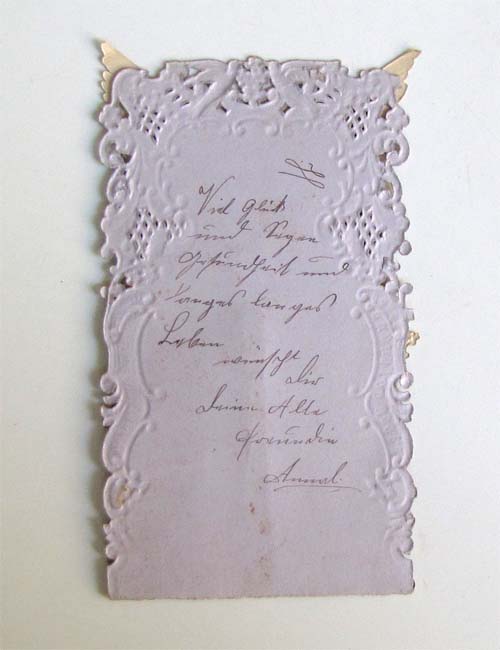 Viel Glück
und Segen
Gesundheit und
langes langes
Leben
wünscht
Dir
Deine Alte
Freundin